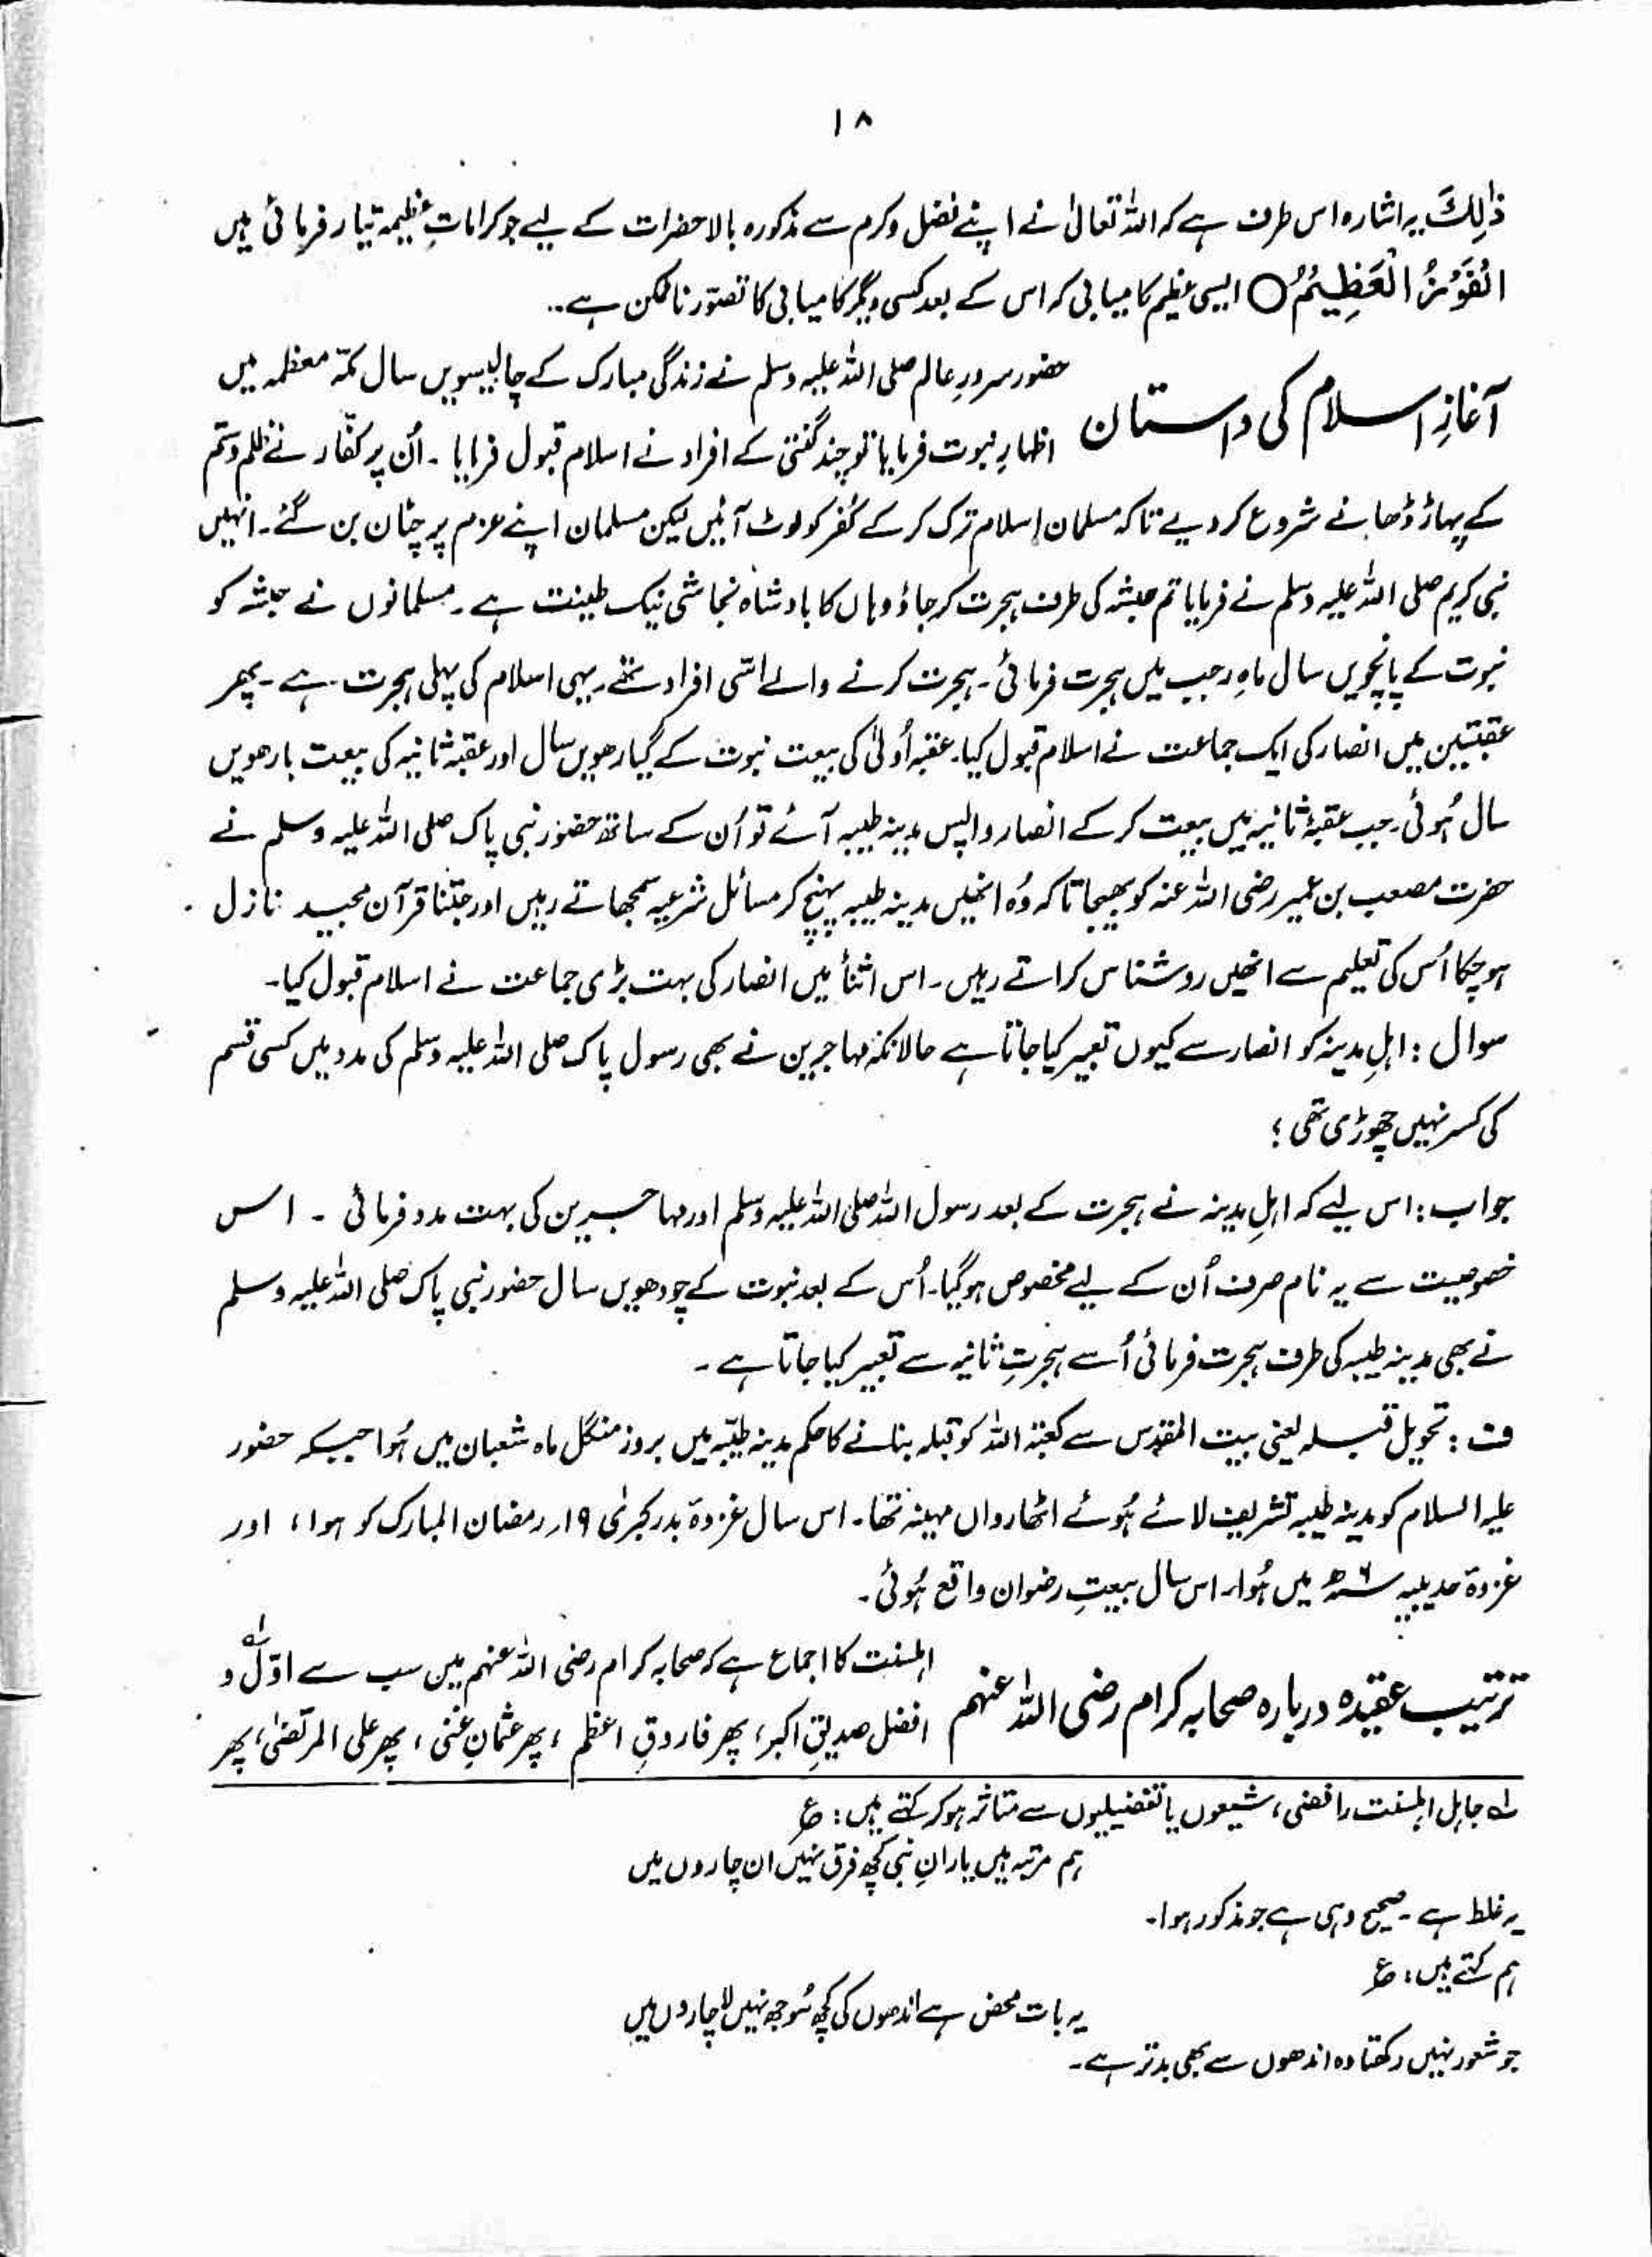 ۱۸
ذٰلِكَ یہ اشارہ اس طرف ہے کہ اللہ تعالیٰ نے اپنے فضل و کرم سے مذکورہ بالا حضرات کے لیے جو کراماتِ عظیمہ تیار فرمائی ہیں
الْفَوْزُ الْعَظِيْمُ ○ ایسی عظیم کامیابی کہ اس کے بعد کسی دیگر کامیابی کا تصوّر ناممکن ہے۔
آغازِ اسلام کی داستان
حضور سرورِ عالم صلی اللہ علیہ وسلم نے زندگی مبارک کے چالیسویں سال مکّہ معظمہ میں
اظہارِ نبوت فرمایا تو چند گنتی کے افراد نے اسلام قبول فرمایا ۔ اُن پر کفّار نے ظلم و ستم
کے پہاڑ ڈھانے شروع کر دیے تاکہ مسلمان اسلام ترک کر کے کفر کو لوٹ آئیں لیکن مسلمان اپنے عزم پر چٹان بن گئے۔ انہیں
نبی کریم صلی اللہ علیہ وسلم نے فرمایا تم حبشہ کی طرف ہجرت کر جاؤ وہاں کا بادشاہ نجاشی نیک طینت ہے ۔ مسلمانوں نے حبشہ کو
نبوت کے پانچویں سال ماہِ رجب میں ہجرت فرمائی ۔ ہجرت کرنے والے اسّی افراد تھے ۔ یہی اسلام کی پہلی ہجرت ہے ۔ پھر
عقبتین میں انصار کی ایک جماعت نے اسلام قبول کیا۔ عقبہ اُولیٰ کی بیعت نبوت کے گیارھویں سال اور عقبہ ثانیہ کی بیعت بارھویں
سال ہُوئی۔ جب عقبۂ ثانیہ میں بیعت کر کے انصار واپس مدینہ طیبہ آئے تو اُن کے ساتھ حضور نبی پاک صلی اللہ علیہ وسلم نے
حضرت مصعب بن عمیر رضی اللہ عنہ کو بھیجا تاکہ وُہ انھیں مدینہ طیبہ پہنچ کر مسائل شرعیہ سمجھاتے رہیں اور جتنا قرآن مجید نازل
ہو چکا اُس کی تعلیم سے انھیں روشناس کراتے رہیں ۔ اس اثنأ میں انصار کی بہت بڑی جماعت نے اسلام قبول کیا۔
سوال : اہلِ مدینہ کو انصار سے کیوں تعبیر کیا جاتا ہے حالانکہ مہاجرین نے بھی رسول پاک صلی اللہ علیہ وسلم کی مدد میں کسی قسم
کی کسر نہیں چھوڑی تھی ؟
جواب : اس لیے کہ اہلِ مدینہ نے ہجرت کے بعد رسول اللہ صلی اللہ علیہ وسلم اور مہاجرین کی بہت مدد فرمائی ۔ اس
خصوصیت سے یہ نام صرف اُن کے لیے مخصوص ہو گیا۔ اُس کے بعد نبوت کے چودھویں سال حضور نبی پاک صلی اللہ علیہ وسلم
نے بھی مدینہ طیبہ کی طرف ہجرت فرمائی اُسے ہجرتِ ثانیہ سے تعبیر کیا جاتا ہے ۔
ف : تحویل قبلہ یعنی بیت المقدس سے کعبۃ اللہ کو قبلہ بنانے کا حکم مدینہ طیّبہ میں بروز منگل ماہ شعبان میں ہُوا جبکہ حضور
علیہ السلام کو مدینہ طیبہ تشریف لائے ہُوئے اٹھارواں مہینہ تھا ۔ اس سال غزوۃ بدر کبریٰ ۱۹؍ رمضان المبارک کو ہوا، اور
غزوۃ حدیبیہ ۶ ھ میں ہُوا۔ اس سال بیعتِ رضوان واقع ہُوئی ۔
ترتیب عقیدہ دربارہ صحابہ کرام رضی اللہ عنہم
اہلسنت کا اجماع ہے کہ صحابہ کرام رضی اللہ عنہم میں سب سے اوّلؔ و
افضل صدیقِ اکبر، پھر فاروقِ اعظم ، پھر عثمان غنی ، پھر علی المرتضیٰ، پھر
لہ جاہل اہلسنت رافضی، شیعوں یا تفضیلیوں سے متاثر ہو کر کہتے ہیں : ع
ہم مرتبہ ہیں یارانِ نبی کچھ فرق نہیں ان چاروں میں
یہ غلط ہے ۔ صحیح وہی ہے جو مذکور ہوا۔
ہم کہتے ہیں : ع
یہ بات محض ہے اندھوں کی کچھ سُوجھ نہیں لاچاروں میں
جو شعور نہیں رکھتا وہ اندھوں سے بھی بدتر ہے ۔